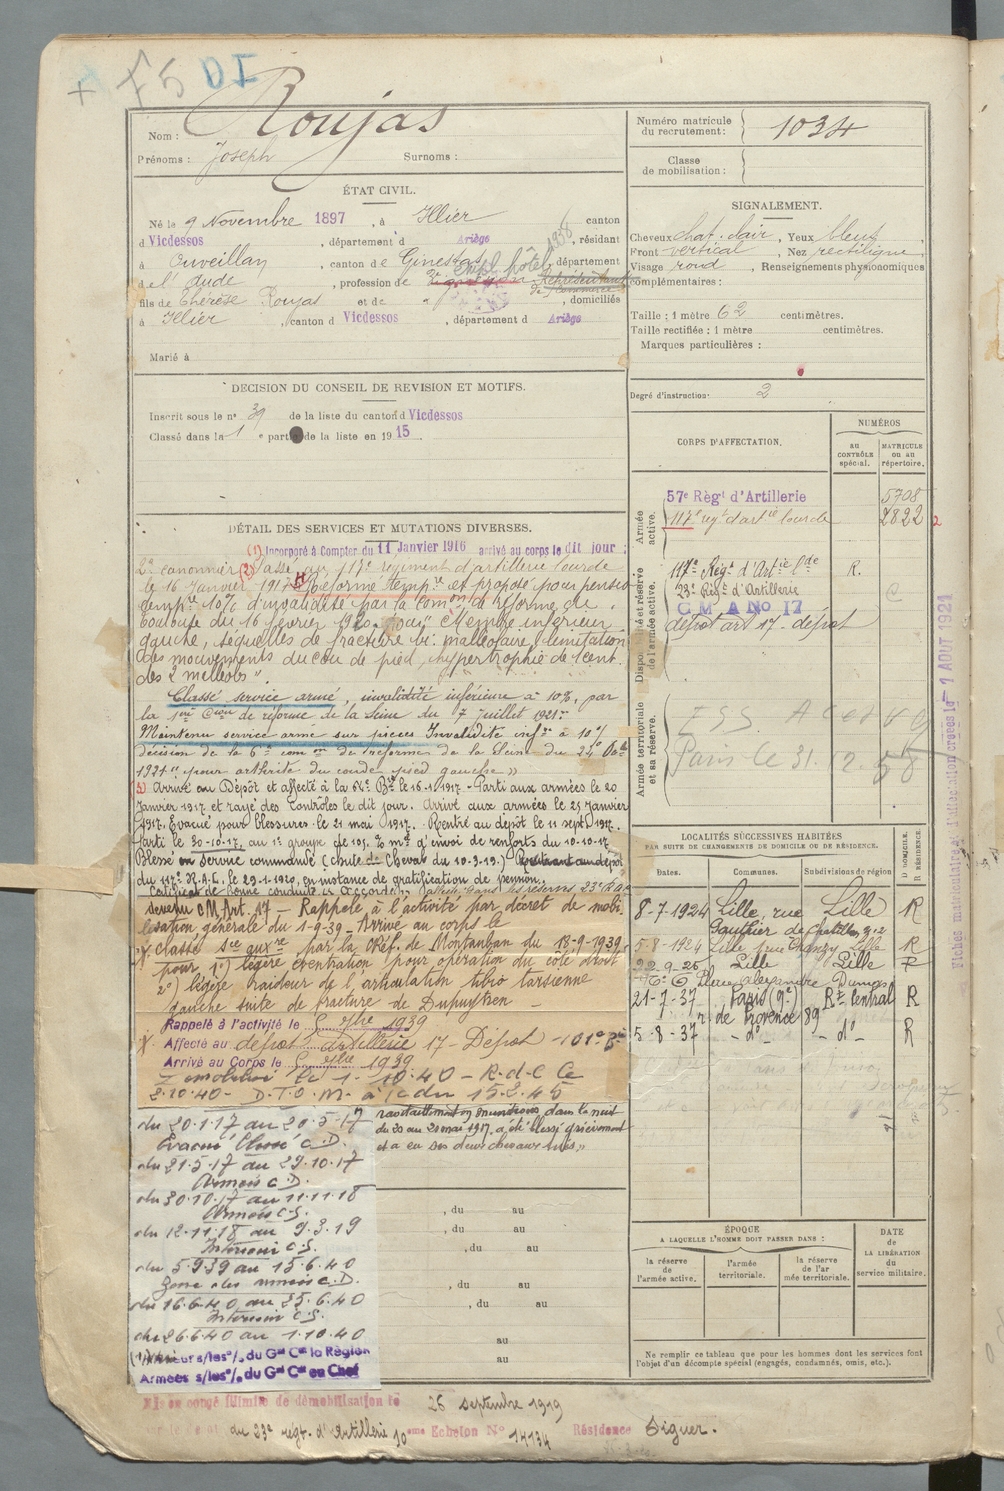 + 75 DI
Nom : Roujas
Prénoms : Joseph Surnoms :
ÉTAT CIVIL.
Né le 9 Novembre 1897, à Illier canton
d Vicdessos, département d Ariège, résidant
à Ouveillan, canton de Ginestas, département
de l'Aude, profession de Empl. hôtel Représentant de Commerce 1938
fils de Thérèse Roujas et de , domiciliés
à Illier, canton d Vicdessos, département d Ariège
Marié à
DECISION DU CONSEIL DE REVISION ET MOTIFS.
Inscrit sous le n° 39 de la liste du canton d Vicdessos
Classé dans la 1e partie de la liste en 1915.
DÉTAIL DES SERVICES ET MUTATIONS DIVERSES.
(1) Incorporé à Compter du 11 Janvier 1916 arrivé au corps le dit jour :
2e canonnier (2) Passé au 117e régiment d'artillerie lourde
le 16 Janvier 1917 Réformé tempre et proposé pour pension
tempre 10% d'invalidité par la Comon de Réforme de
Toulouse du 16 février 1920 pour "Membre inférieur
gauche, séquelles de fracture bi-malléolaire, limitation
des mouvements du cou de pied, hypertrophie de 1 cent.
des 2 malléoles".
Classé service armé, invalidité inférieure à 10%, par
la 1ère Cion de réforme de la Seine du 7 juillet 1921
Maintenu service armé sur pièces Invalidité infre à 10%
décision de la 6e comon de réforme de la Seine du 24 Octb
1921 pour arthrite du coude pied gauche »
3) Arrivé au Dépôt et affecté à la 64e Bie le 16.1.1917 - Parti aux armées le 20
Janvier 1917 et rayé des Contrôles le dit jour. Arrivé aux armées le 25 Janvier
1917. Evacué pour blessures le 21 mai 1917. Rentré au dépôt le 11 sept. 1917.
Parti le 30-10-17, au 1er groupe de 105 % mt d'envoi de renforts du 10-10-17
Blessé en service commandé (chute de cheval du 10-3-19)
du 117e R.A.L. le 29.1.1920, en instance de gratification de pension.
Certificat de Bonne conduite "Accordé". Passé dans les réserves 23e R.A.C
devenu C M Art. 17 – Rappelé à l'activité par décret de mobi
lisation générale du 1-9-39 – Arrivé au corps le
X classé sce auxre par la C.Réf. de Montauban du 18-9-1939
pour 1°) légère éventration pour opération du côté droit
2°) légère raideur de l'articulation tibio tarsienne
gauche suite de fracture de Dupuytren –
Rappelé à l'activité le 5 7bre 1939
X Affecté au dépôt artillerie 17 - Dépôt - 101e Bie
Arrivé au Corps le 5 7bre 1939
Démobilisé le 1-10-40 – R.d.C Ce
2.10.40 – D.T.O.M. à/c du 15.2.45
du 20.1.17 au 20.5.17
Evacué blessé C.D.
du 21.5.17 au 29.10.17
Armées C.D.
du 30.10.17 au 11.11.18
Armées C.S.
du 12.11.18 au 9.3.19
Intérieur C.S.
du 5.9.39 au 15.6.40
Zone des armées C.D.
du 16.6.40 au 25.6.40
Intérieur C.S.
du 26.6.40 au 1.10.40
s/les °/. du Gal Ct la Région
Armées s/les °/. du Gal Ct en Chef
ravitaillement en munitions dans la nuit
du 20 au 21 mai 1917, a été blessé grièvement
et a eu ses deux chevaux tués »
, du au
, du au
, du au
, du au
, du au
au
au
Mis en congé illimité de démobilisation le 26 septembre 1919
du 23e régt. d'Artillerie 10ème Echelon N° 14134 Résidence Siguer.
Numéro matricule du recrutement : 1034
Classe de mobilisation :
SIGNALEMENT.
Cheveux chat. clair, Yeux bleus
Front vertical, Nez rectiligne
Visage rond, Renseignements physionomiques
complémentaires :
Taille : 1 mètre 62 centimètres.
Taille rectifiée : 1 mètre centimètres.
Marques particulières :
Degré d'instruction: 2
CORPS D'AFFECTATION.
NUMÉROS
AU CONTRÔLE spécial.
MATRICULE ou au répertoire.
Armée active.
57e Règt d'Artillerie 5708
117e regt d'artie lourde 2822 2
Disponibilité et réserve de l'armée active.
117e Régt d'Artie Lde R.
23e Régt d'Artillerie C
C M A No 17
dépôt art 17 - dépôt
Armée territoriale et sa réserve.
Paris le 31.12.58
LOCALITÉS SUCCESSIVES HABITÉES
PAR SUITE DE CHANGEMENTS DE DOMICILE OU DE RÉSIDENCE.
D DOMICILE. R RÉSIDENCE.
Dates. Communes. Subdivisions de région
8-7-1924 Lille, rue Lille R
Gauthier de Chatillon, n° 2
5-8-1924 Lille, rue Chanzy Lille R
22-9-26 Lille Lille R
Place Alexandre Dumas
21-7-37 Paris (9e) Rt central R
r. de Provence 89
5-8-37 - d° - - d° R
ÉPOQUE
A LAQUELLE L'HOMME DOIT PASSER DANS :
la réserve de l'armée active.
l'armée territoriale.
la réserve de l'ar mée territoriale.
DATE de LA LIBÉRATION du service militaire.
Ne remplir ce tableau que pour les hommes dont les services font
l'objet d'un décompte spécial (engagés, condamnés, omis, etc.).
Fiches matriculaire et d'allocation créées le - 1 AOUT 1921